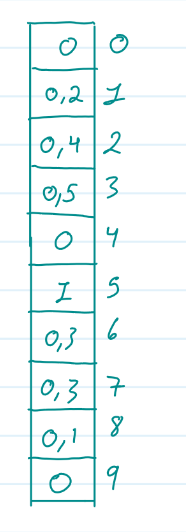 0 0
0,2 1
0,4 2
0,5 3
0 4
1 5
0,3 6
0,3 7
0,1 8
0 9